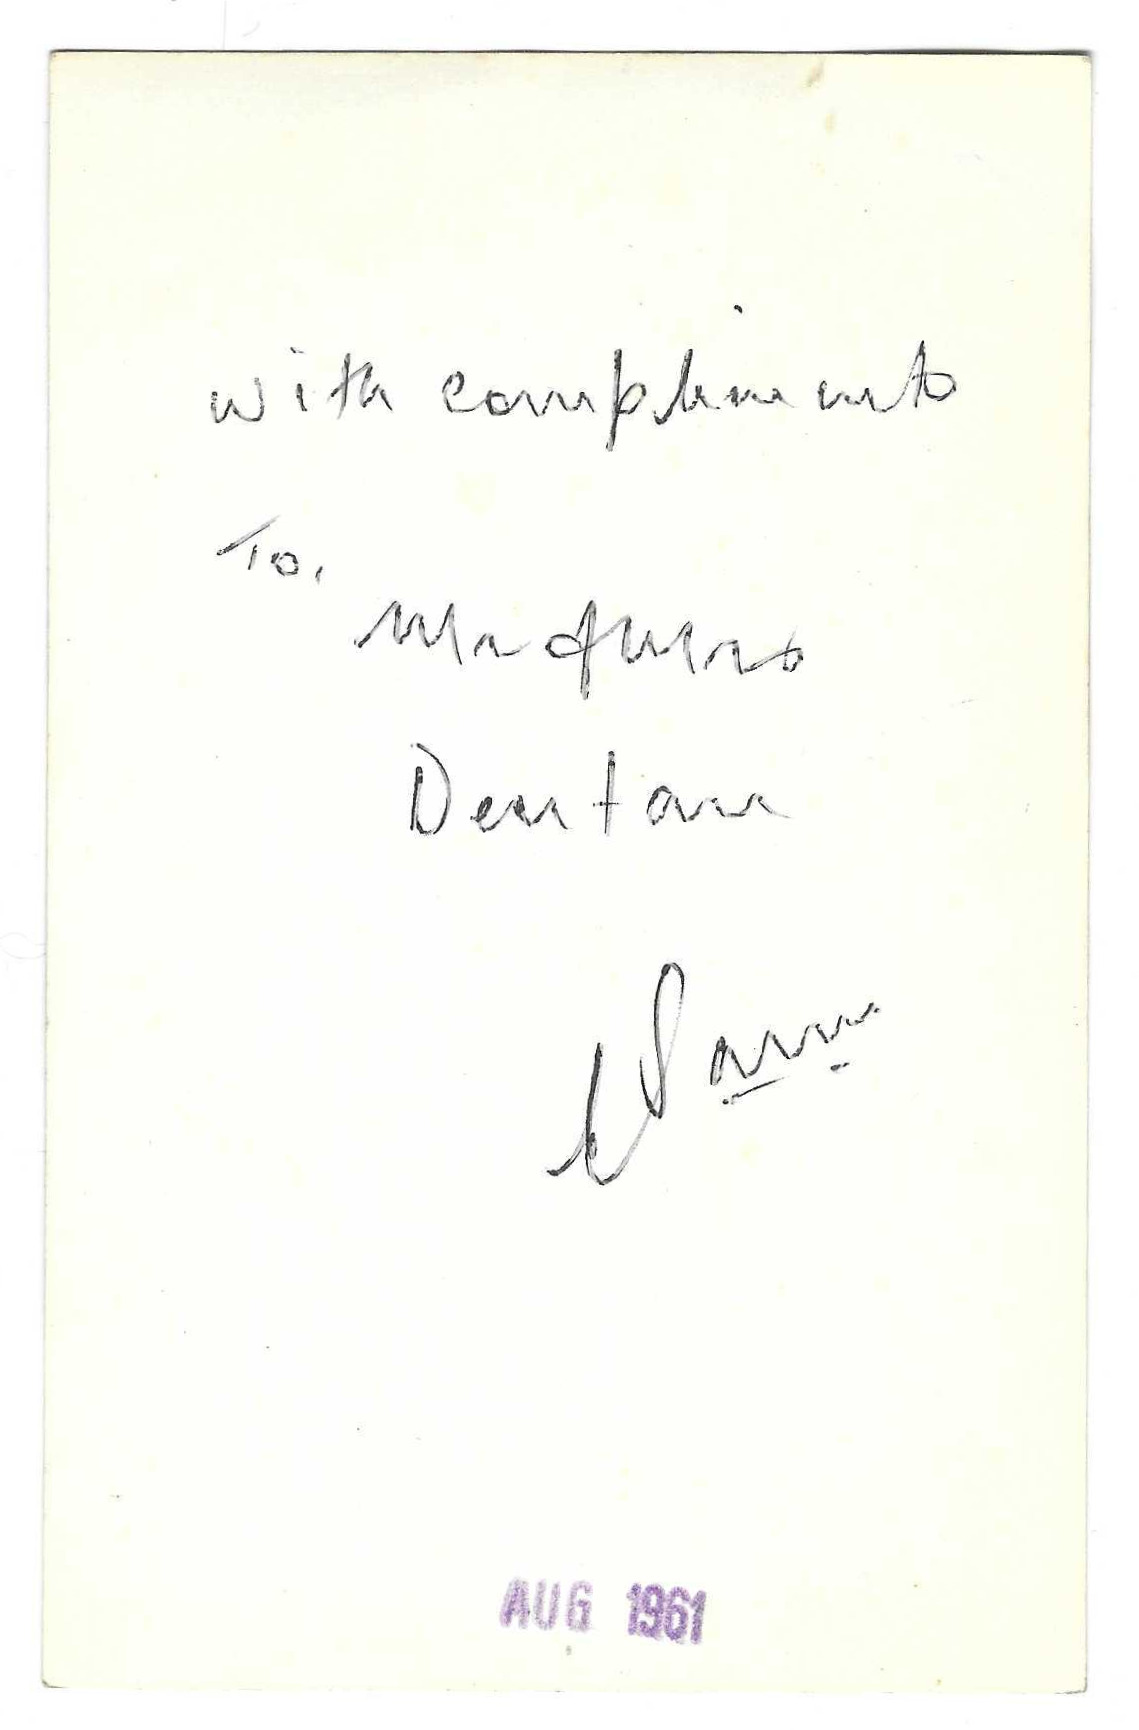 with compliments
To,
Mr & Mrs
Denton
AUG 1961